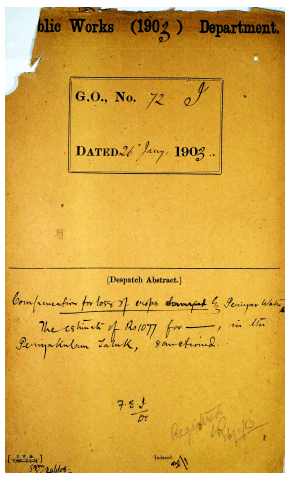 blic Works (1903) Department.
G.O., No. 72 I
DATED 26 Jany. 1903.
[Despatch Abstract.]
Compensation for loss of crops damaged by Periyar Water
The estimate of Rs 1077 for —, in the
Periyakulam Taluk, sanctioned.
7 E I
Registered
Indexed